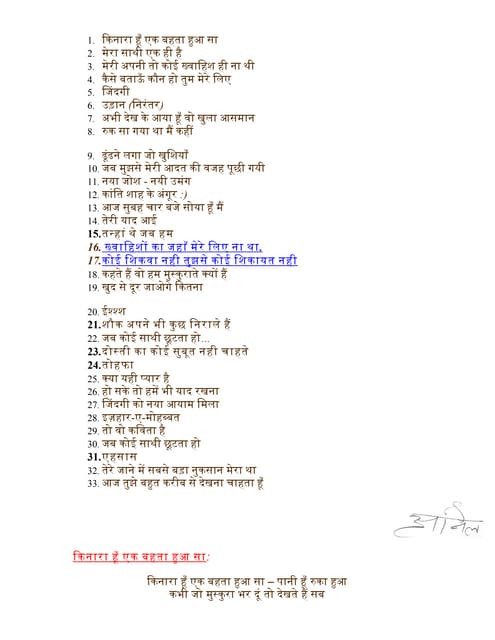 1. किनारा हूँ एक बहता हुआ सा
2. मेरा साथी एक ही है
3. मेरी अपनी तो कोई ख्वाहिश ही ना थी
4. कैसे बताऊँ कौन हो तुम मेरे लिए
5. जिंदगी
6. उड़ान (निरंतर)
7. अभी देख के आया हूँ वो खुला आसमान
8. रुक सा गया था मैं कहीं
9. ढूंढने लगा जो खुशियाँ
10. जब मुझसे मेरी आदत की वजह पूछी गयी
11. नया जोश - नयी उमंग
12. कांति शाह के अंगूर :)
13. आज सुबह चार बजे सोया हूँ मैं
14. तेरी याद आई
15. तन्हां थे जब हम
16. ख्वाहिशों का जहाँ मेरे लिए ना था.
17. कोई शिकवा नही तुझसे कोई शिकायत नही
18. कहते हैं वो हम मुस्कुराते क्यों हैं
19. खुद से दूर जाओगे कितना
20. ईश्श्श
21. शौक अपने भी कुछ निराले हैं
22. जब कोई साथी छूटता हो...
23. दोस्ती का कोई सुबूत नही चाहते
24. तोहफा
25. क्या यही प्यार है
26. हो सके तो हमें भी याद रखना
27. जिंदगी को नया आयाम मिला
28. इज़हार-ए-मोहब्बत
29. तो वो कविता है
30. जब कोई साथी छूटता हो
31. एहसास
32. तेरे जाने में सबसे बड़ा नुकसान मेरा था
33. आज तुझे बहुत करीब से देखना चाहता हूँ
किनारा हूँ एक बहता हुआ सा:
किनारा हूँ एक बहता हुआ सा – पानी हूँ रुका हुआ
कभी जो मुस्कुरा भर दूं तो देखते हैं सब